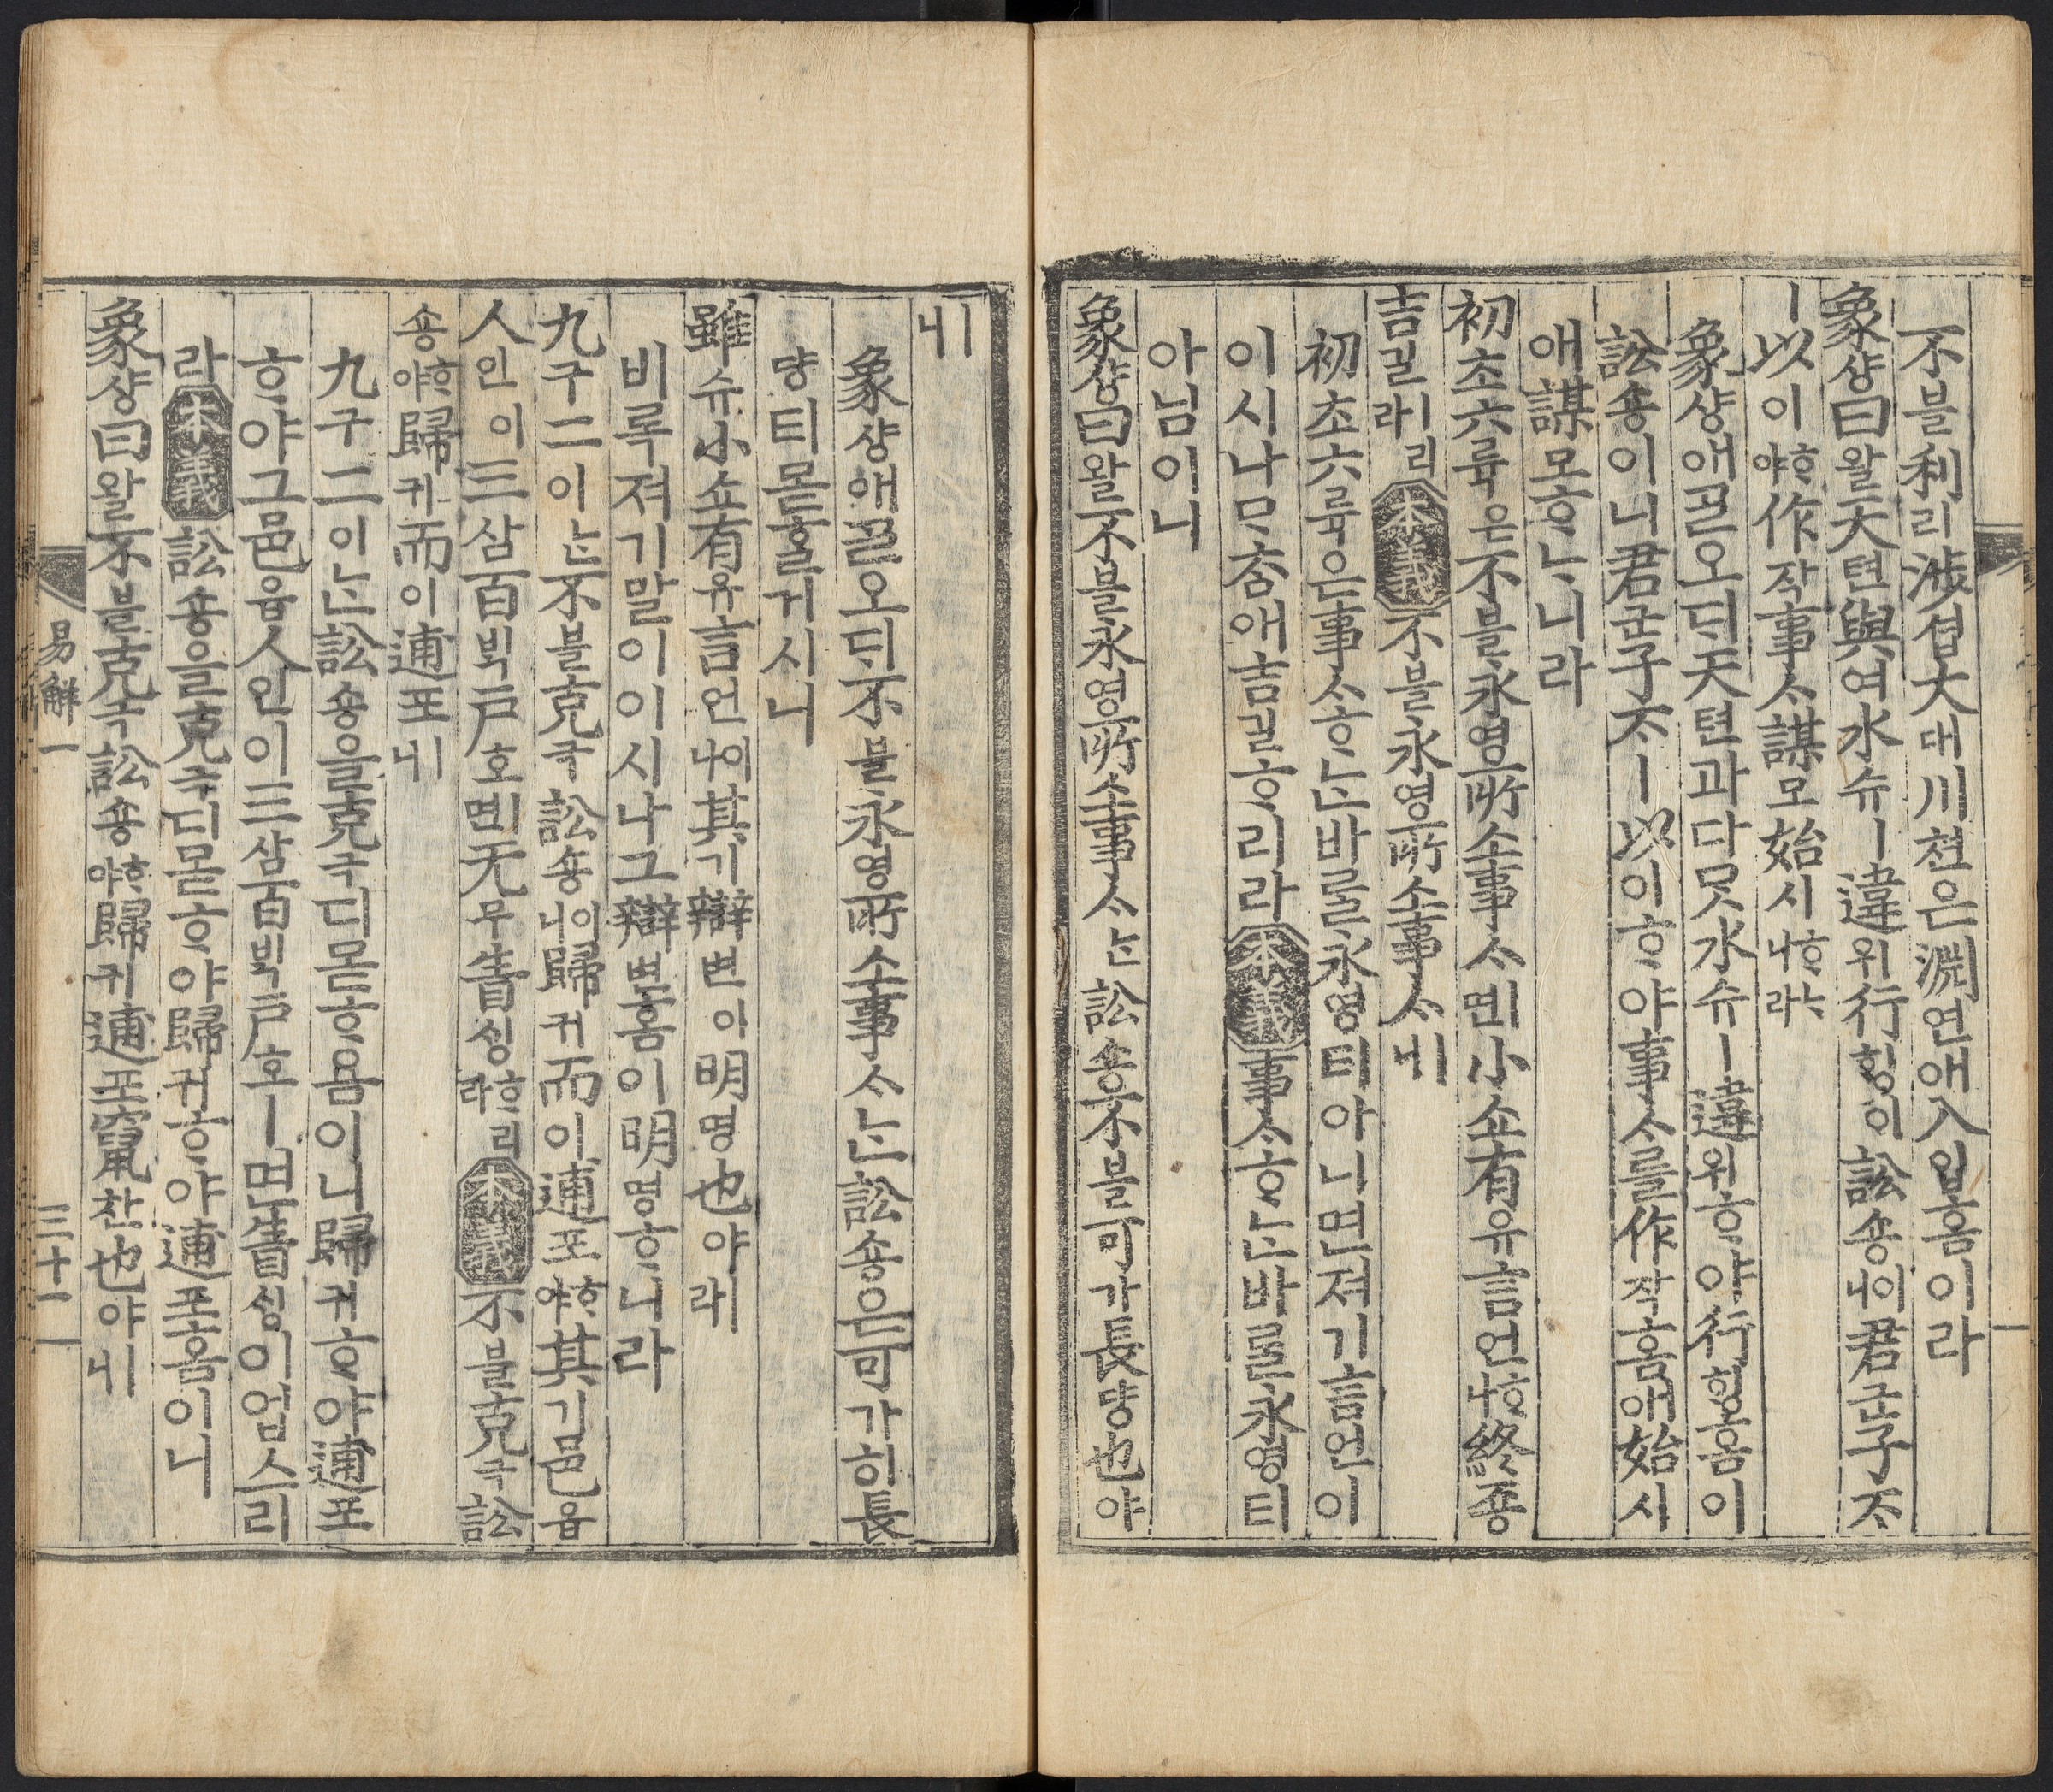 不블利리涉셥大대川쳔은淵연애入입홈이라
象샹曰왈天텬與여水슈ㅣ違위行ᄒᆡᆼ이訟숑이니君군子ᄌᆞ
ㅣ以이ᄒᆞ야作작事ᄉᆞ謀모始시ᄒᆞᄂᆞ니라
象샹애ᄀᆞᆯ오ᄃᆡ天텬과다ᄆᆞᆺ水슈ㅣ違위ᄒᆞ야行ᄒᆡᆼ홈이
訟숑이니君군子ᄌᆞㅣ以이ᄒᆞ야事ᄉᆞ를作작홈애始시
애謀모ᄒᆞᄂᆞ니라
初초六륙은不블永영所소事ᄉᆞㅣ면小쇼有유言언ᄒᆞ나終죵
吉길ㅣ리라本義不블永영所소事ᄉᆞㅣ니
初초六륙은事ᄉᆞᄒᆞᄂᆞᆫ바ᄅᆞᆯ永영티아니면져기言언이
이시나ᄆᆞᄎᆞᆷ애吉길ᄒᆞ리라本義事ᄉᆞᄒᆞᄂᆞᆫ바ᄅᆞᆯ永영티
아님이니
象샹曰왈不블永영所소事ᄉᆞᄂᆞᆫ訟숑不블可가長댱也야
ㅣ니
象샹애ᄀᆞᆯ오ᄃᆡ不블永영所소事ᄉᆞᄂᆞᆫ訟숑은可가히長
댱티몯ᄒᆞᆯ거시니
雖슈小쇼有유言언이나其기辯변이明명也야ㅣ라
비록져기말이이시나그辯변홈이明명ᄒᆞ니라
九구二이ᄂᆞᆫ不블克극訟숑이니歸귀而이逋포ᄒᆞ야其기邑읍
人인이三삼百ᄇᆡᆨ戶호ㅣ면无무眚ᄉᆡᆼᄒᆞ리라本義不블克극訟
숑ᄒᆞ야歸귀而이逋포ㅣ니
九구二이ᄂᆞᆫ訟숑을克극디몯ᄒᆞ욤이니歸귀ᄒᆞ야逋포
ᄒᆞ야그邑읍人인이三삼百ᄇᆡᆨ戶호ㅣ면眚ᄉᆡᆼ이업스리
라本義訟숑을克극디몯ᄒᆞ야歸귀ᄒᆞ야逋포홈이니
象샹曰왈不블克극訟숑ᄒᆞ야歸귀逋포竄찬也야ㅣ니
易解一 三十一